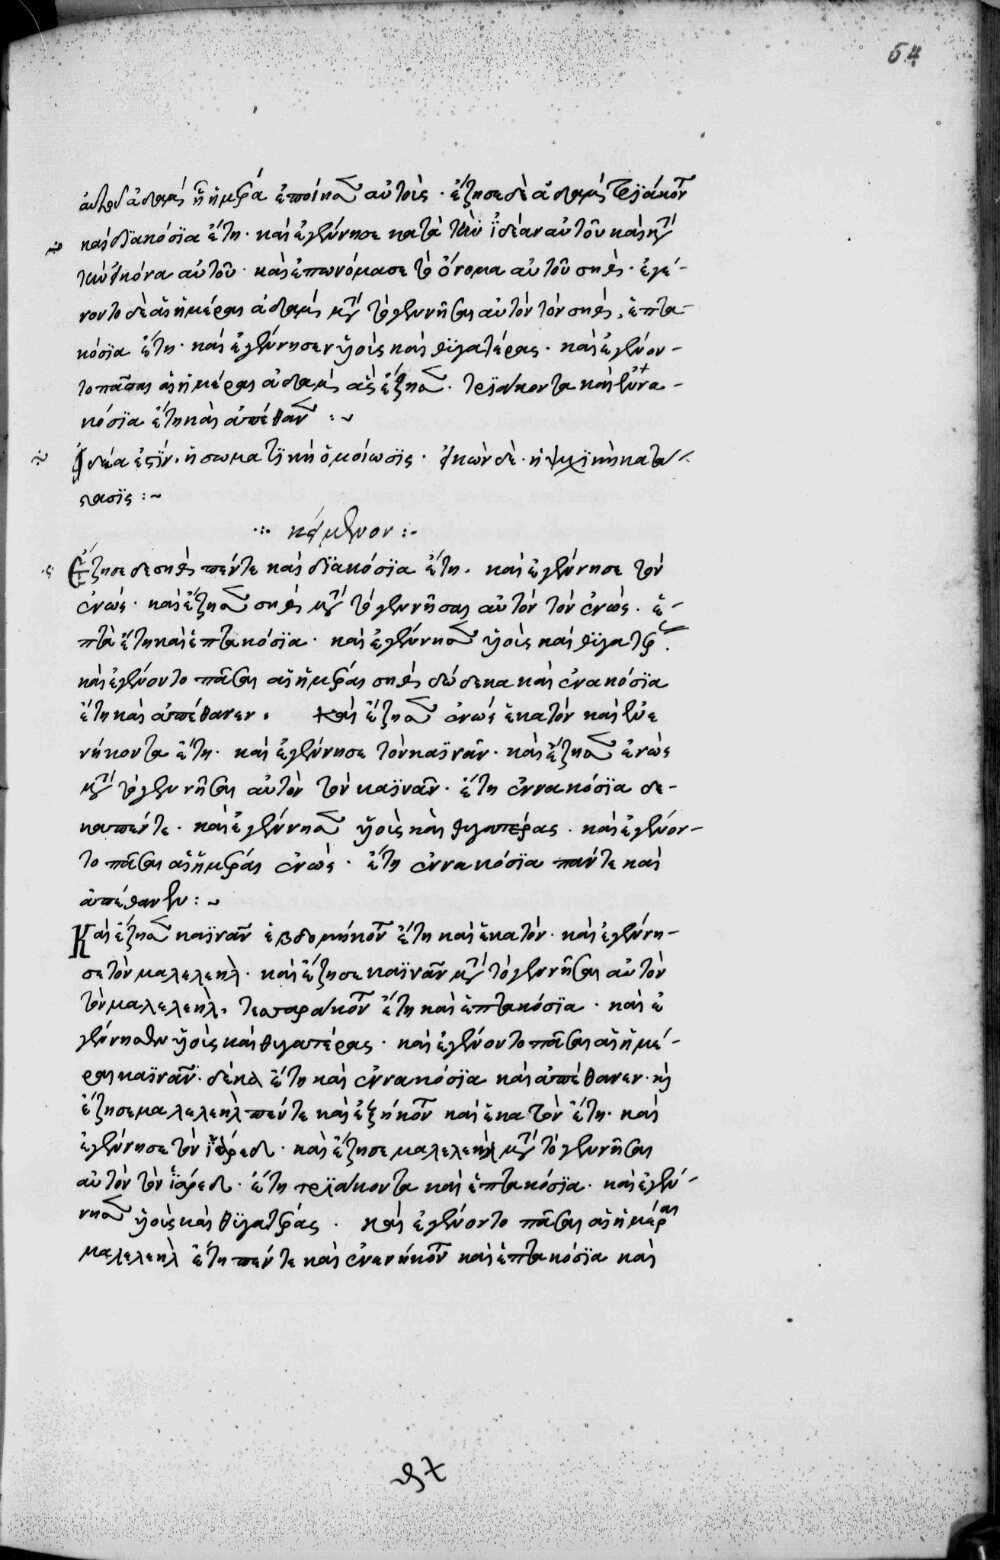 54
αὐτοῦ ἀδαμ· ᾗ ἡμέρα ἐποίησεν αὐτοὺς · ἔζησε δὲ ἀδαμ τριάκοντ
καὶ διακόσια ἔτη · καὶ ἐγέννησε κατὰ τὴν ἰδέαν αὐτοῦ καὶ κατὰ
τὴν εἰκόνα αὐτοῦ · καὶ ἐπωνόμασε τὸ ὄνομα αὐτοῦ σήθ · ἐγέ-
νοντο δὲ αἱ ἡμέραι ἀδαμ μετὰ τὸ γεννῆσαι αὐτὸν τὸν σήθ, ἑπτα-
κόσια ἔτη · καὶ ἐγέννησεν υἱοὺς καὶ θυγατέρας · καὶ ἐγένον-
το πᾶσαι αἱ ἡμέραι ἀδαμ ἃς ἔζησεν · τριάκοντα καὶ ἐννα-
κόσια ἔτη καὶ ἀπέθαν : ~
Ἰδέα ἐστὶν · ἡ σωματικὴ ὁμοίωσις · εἰκὼν δὲ · ἡ ψυχικὴ κατα
στασις : ~
∴ κείμενον : ·
Ἔζησε δε σηθ πέντε καὶ διακόσια ἔτη · καὶ ἐγέννησε τὸν
ἐνώς · καὶ ἔζησεν σηθ μετὰ τὸ γεννῆσαι αὐτὸν τὸν ἐνώς · ἑ-
πτὰ ἔτη καὶ ἑπτακόσια · καὶ ἐγέννησεν υἱοὺς καὶ θυγατέρας ·
καὶ ἐγένοντο πᾶσαι αἱ ἡμέραι σηθ δώδεκα καὶ ἐνακόσια
ἔτη καὶ ἀπέθανεν · καὶ ἔζησεν ἐνώς ἑκατὸν καὶ ἐνε
νήκοντα ἔτη · καὶ ἐγέννησε τὸν καϊνᾶν · καὶ ἔζησεν ἐνὼς
μετὰ τὸ γεννῆσαι αὐτὸν τὸν καϊνᾶν · ἔτη ἐννακόσια δε-
καπέντε · καὶ ἐγέννησεν υἱοὺς καὶ θυγατέρας · καὶ ἐγένον-
το πᾶσαι αἱ ἡμέραι ἐνώς · ἔτη ἐννακόσια πέντε καὶ
ἀπέθανεν : ~
Καὶ ἔζησεν καϊνᾶν ἑβδομήκοντ ἔτη καὶ ἑκατόν · καὶ ἐγέννη-
σε τὸν μαλελεηλ · καὶ ἔζησε καϊνᾶν μετὰ τὸ γεννῆσαι αὐτὸν
τὸν μαλελεηλ, τεσσαράκοντ ἔτη καὶ ἑπτακόσια · καὶ ἐ
γέννησεν υἱοὺς καὶ θυγατέρας · καὶ ἐγένοντο πᾶσαι αἱ ἡμέ-
ραι καϊνᾶν δέκα ἔτη καὶ ἐννακόσια καὶ ἀπέθανεν · καὶ
ἔζησε μαλελεηλ πέντε καὶ ἑξήκοντ καὶ ἑκατὸν ἔτη · καὶ
ἐγέννησε τὸν ἰάρεδ · καὶ ἔζησε μαλελεηλ μετὰ τὸ γεννῆσαι
αὐτὸν τὸν ἰάρεδ · ἔτη τριάκοντα καὶ ἑπτακόσια · καὶ ἐγέν-
νησεν υἱοὺς καὶ θυγατέρας · καὶ ἐγένοντο πᾶσαι αἱ ἡμέραι
μαλελεηλ ἔτη πέντε καὶ ἐνενήκοντ καὶ ἑπτακόσια καὶ